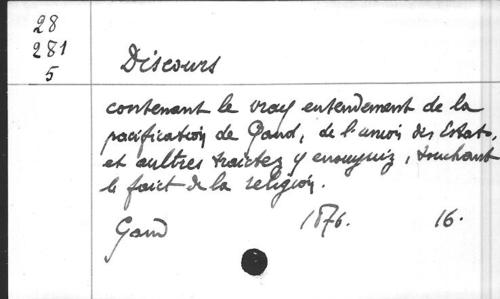 28
281
5
Discours
contenant le vray entendement de la
pacification de Gand, de l'union des Estats,
et aultres traictez y ensuyuiz, touchant
le faict de la religion.
Gand 1876. 16.